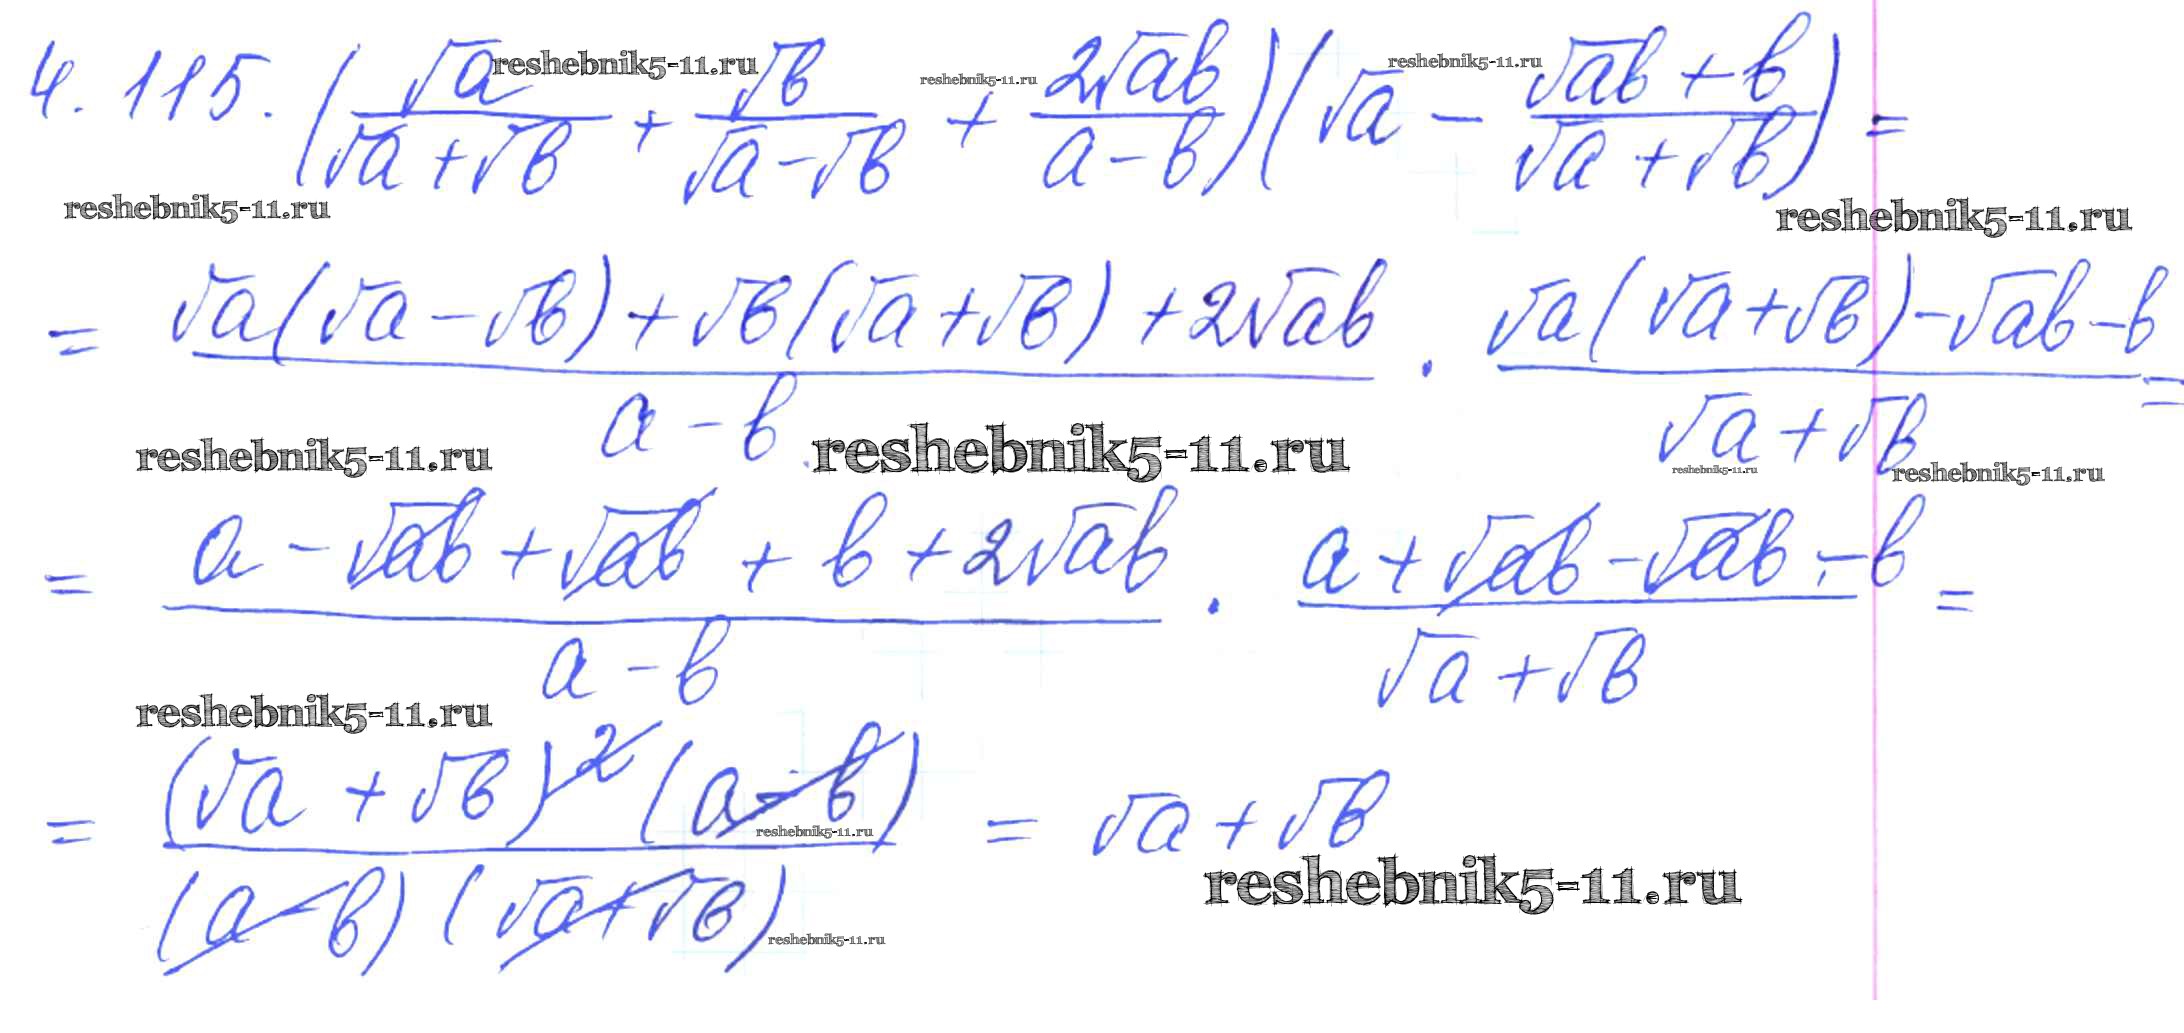 4.115. (√a/(√a+√b) + √b/(√a-√b) + 2√ab/(a-b))(√a - (√ab+b)/(√a+√b)) =
reshebnik5-11.ru
reshebnik5-11.ru
reshebnik5-11.ru
reshebnik5-11.ru
reshebnik5-11.ru
= (√a(√a-√b)+√b(√a+√b)+2√ab)/(a-b) · (√a(√a+√b)-√ab-b)/(√a+√b) =
reshebnik5-11.ru
reshebnik5-11.ru
reshebnik5-11.ru
reshebnik5-11.ru
= (a-√ab+√ab+b+2√ab)/(a-b) · (a+√ab-√ab-b)/(√a+√b) =
reshebnik5-11.ru
= ((√a+√b)²(a-b))/((a-b)(√a+√b)) = √a+√b
reshebnik5-11.ru
reshebnik5-11.ru
reshebnik5-11.ru